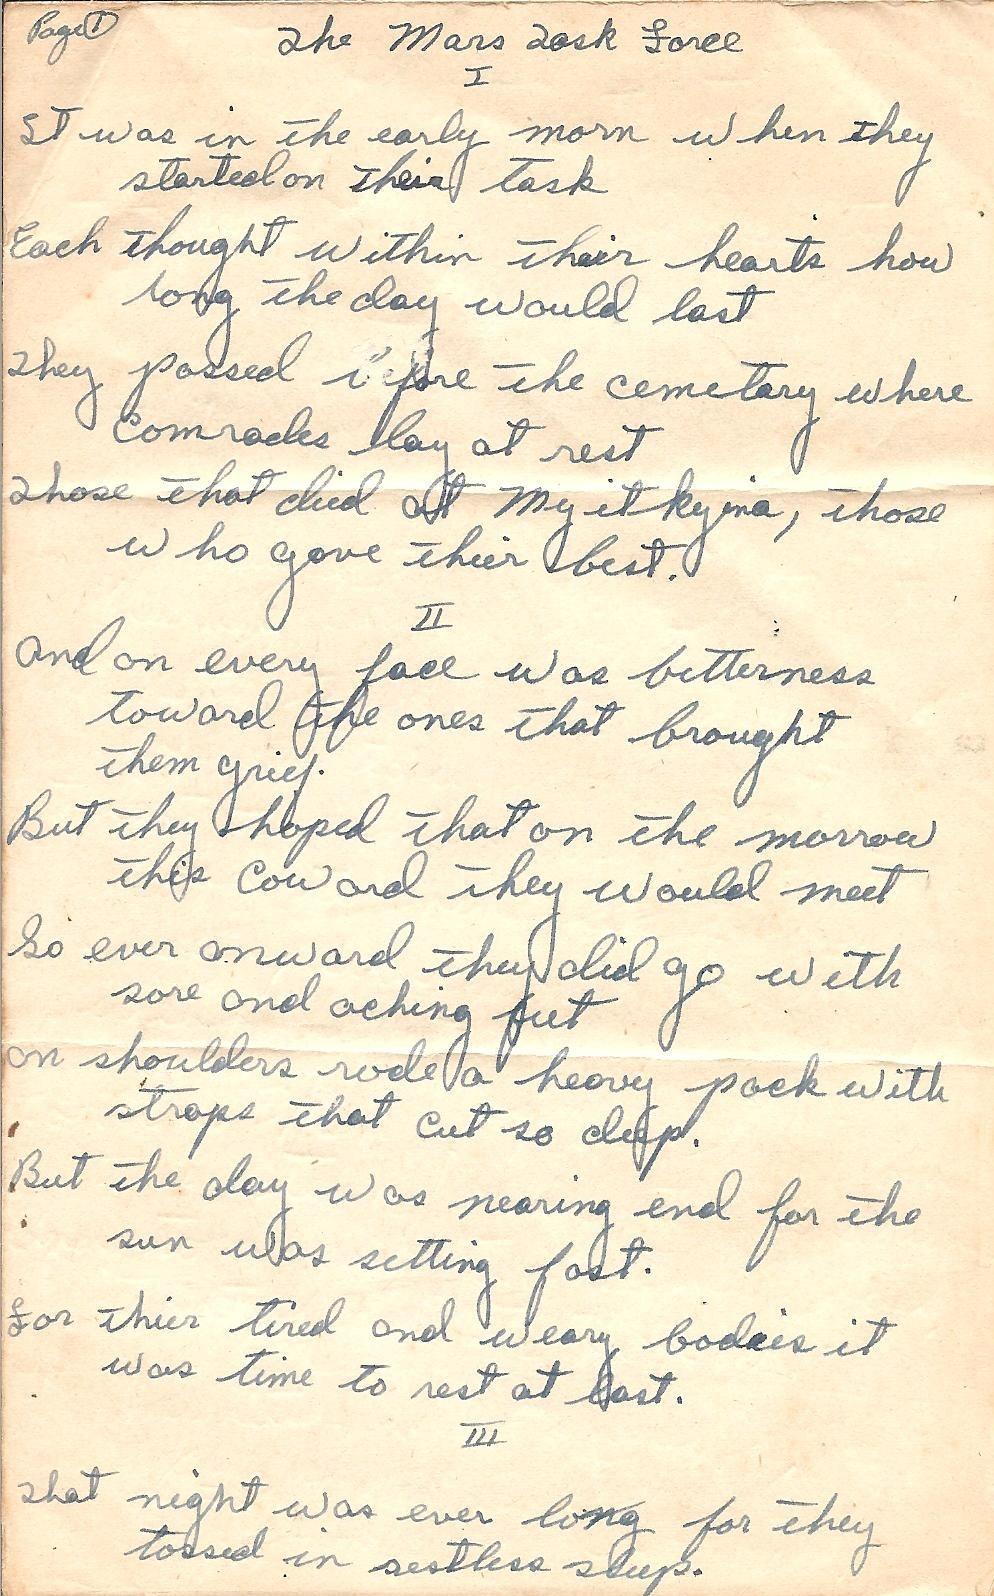 Page 1
The Mars Task Force
I
It was in the early morn when they
started on their task
Each thought within their hearts how
long the day would last
They passed before the cemetary where
Comrades lay at rest
Those that died at Myitkyina, those
who gave thier best.
II
And on every face was bitterness
toward the ones that brought
them grief.
But they hoped that on the morrow
this Coward they would meet
So ever onward they did go with
sore and aching feet
on shoulders rode a heavy pack with
straps that cut so deep.
But the day was nearing end for the
sun was setting fast.
For thier tired and weary bodeis it
was time to rest at last.
III
That night was ever long for they
tossed in restless sleep.